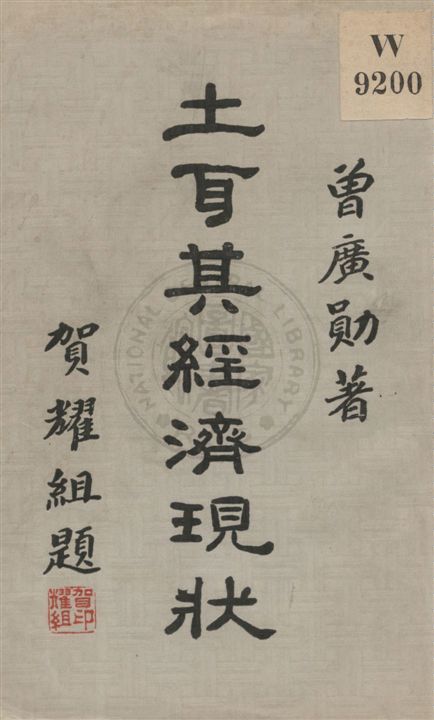 W
9200
曾廣勛著
土耳其經濟現狀
賀耀組題
賀印
耀組
NATIONAL LIBRARY